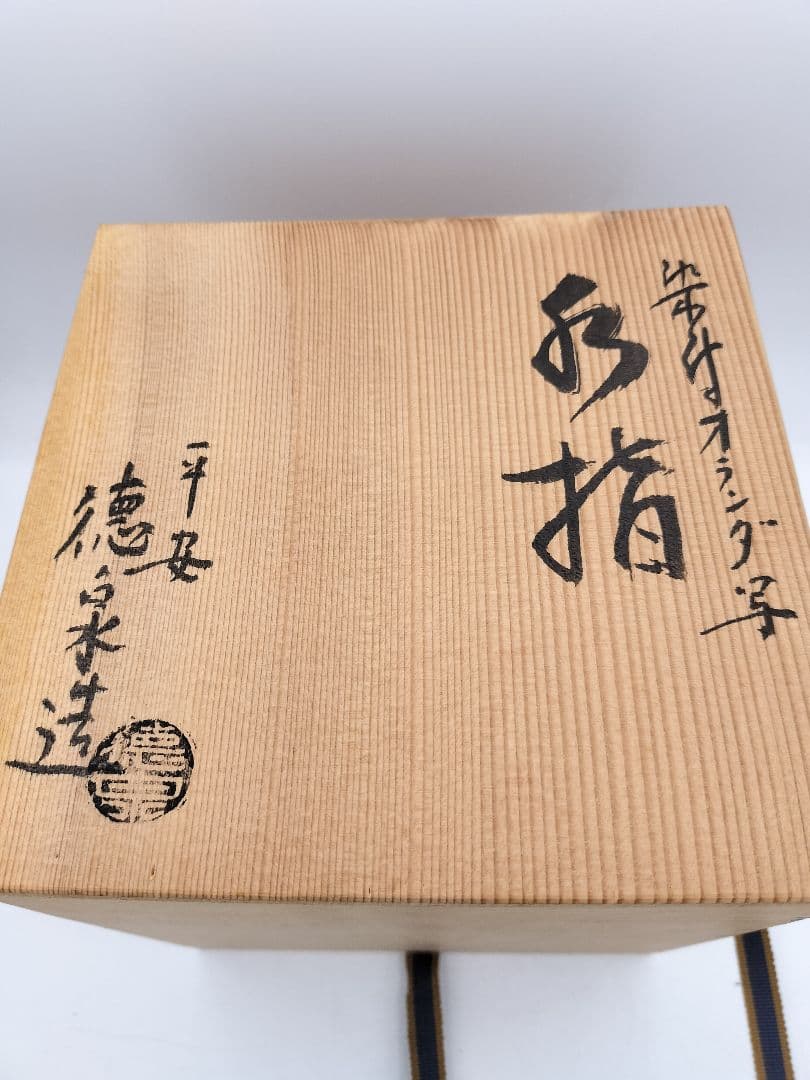 染付オランダ写
水指
平安
徳泉造
徳泉